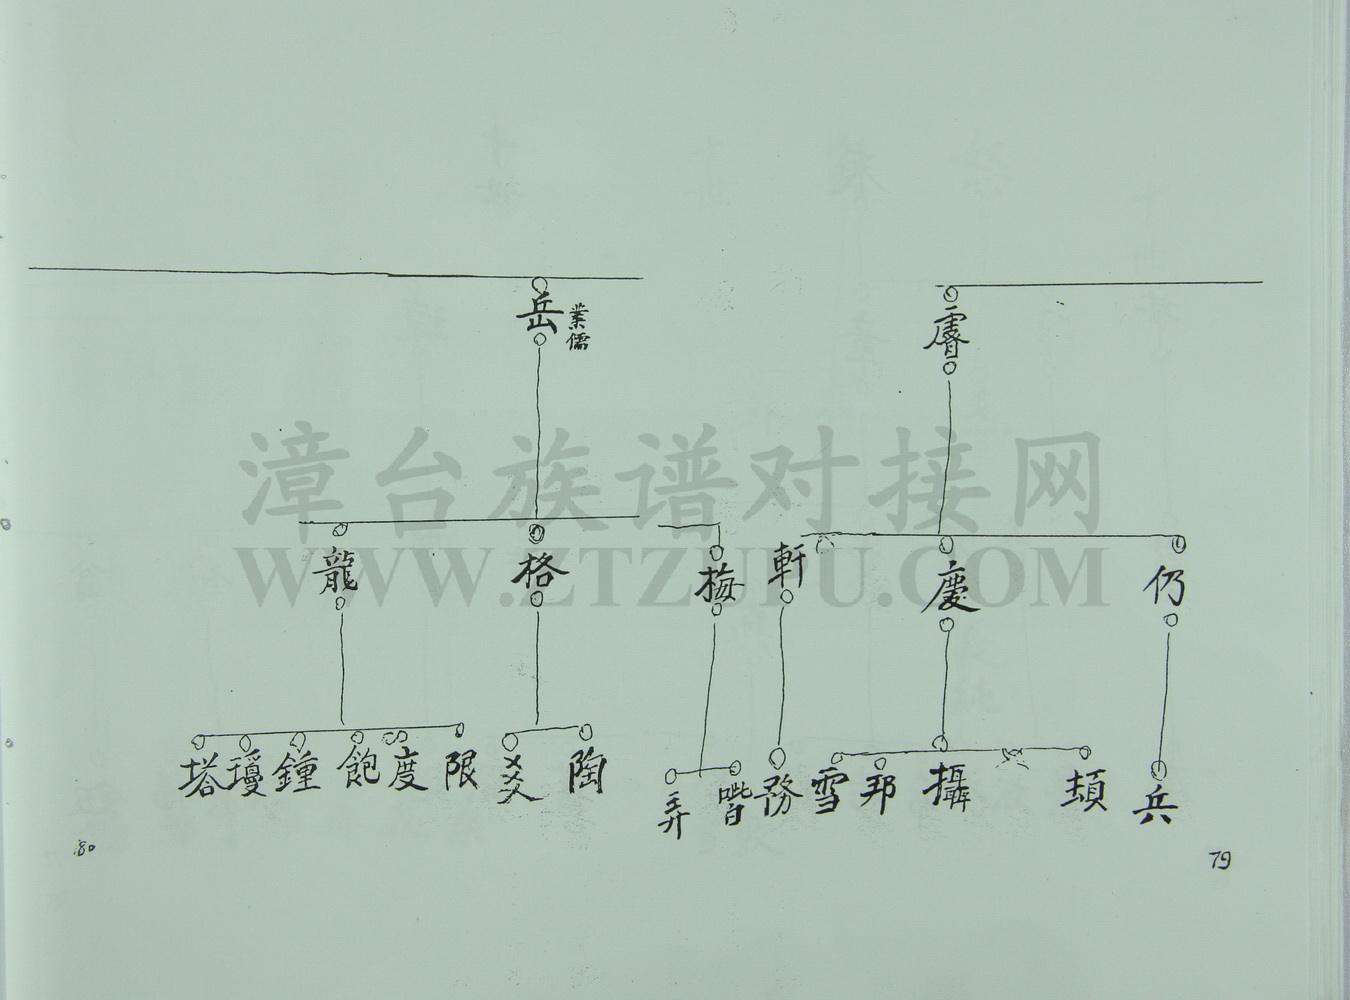 岳
業儒
龍 格
塔 瓊 鐘 飽 度 限 陶
80
梅 軒 慶 仍
弄 務 雪 邦 攝 頡 兵
79
漳台族谱对接网
WWW.ZTZUPU.COM